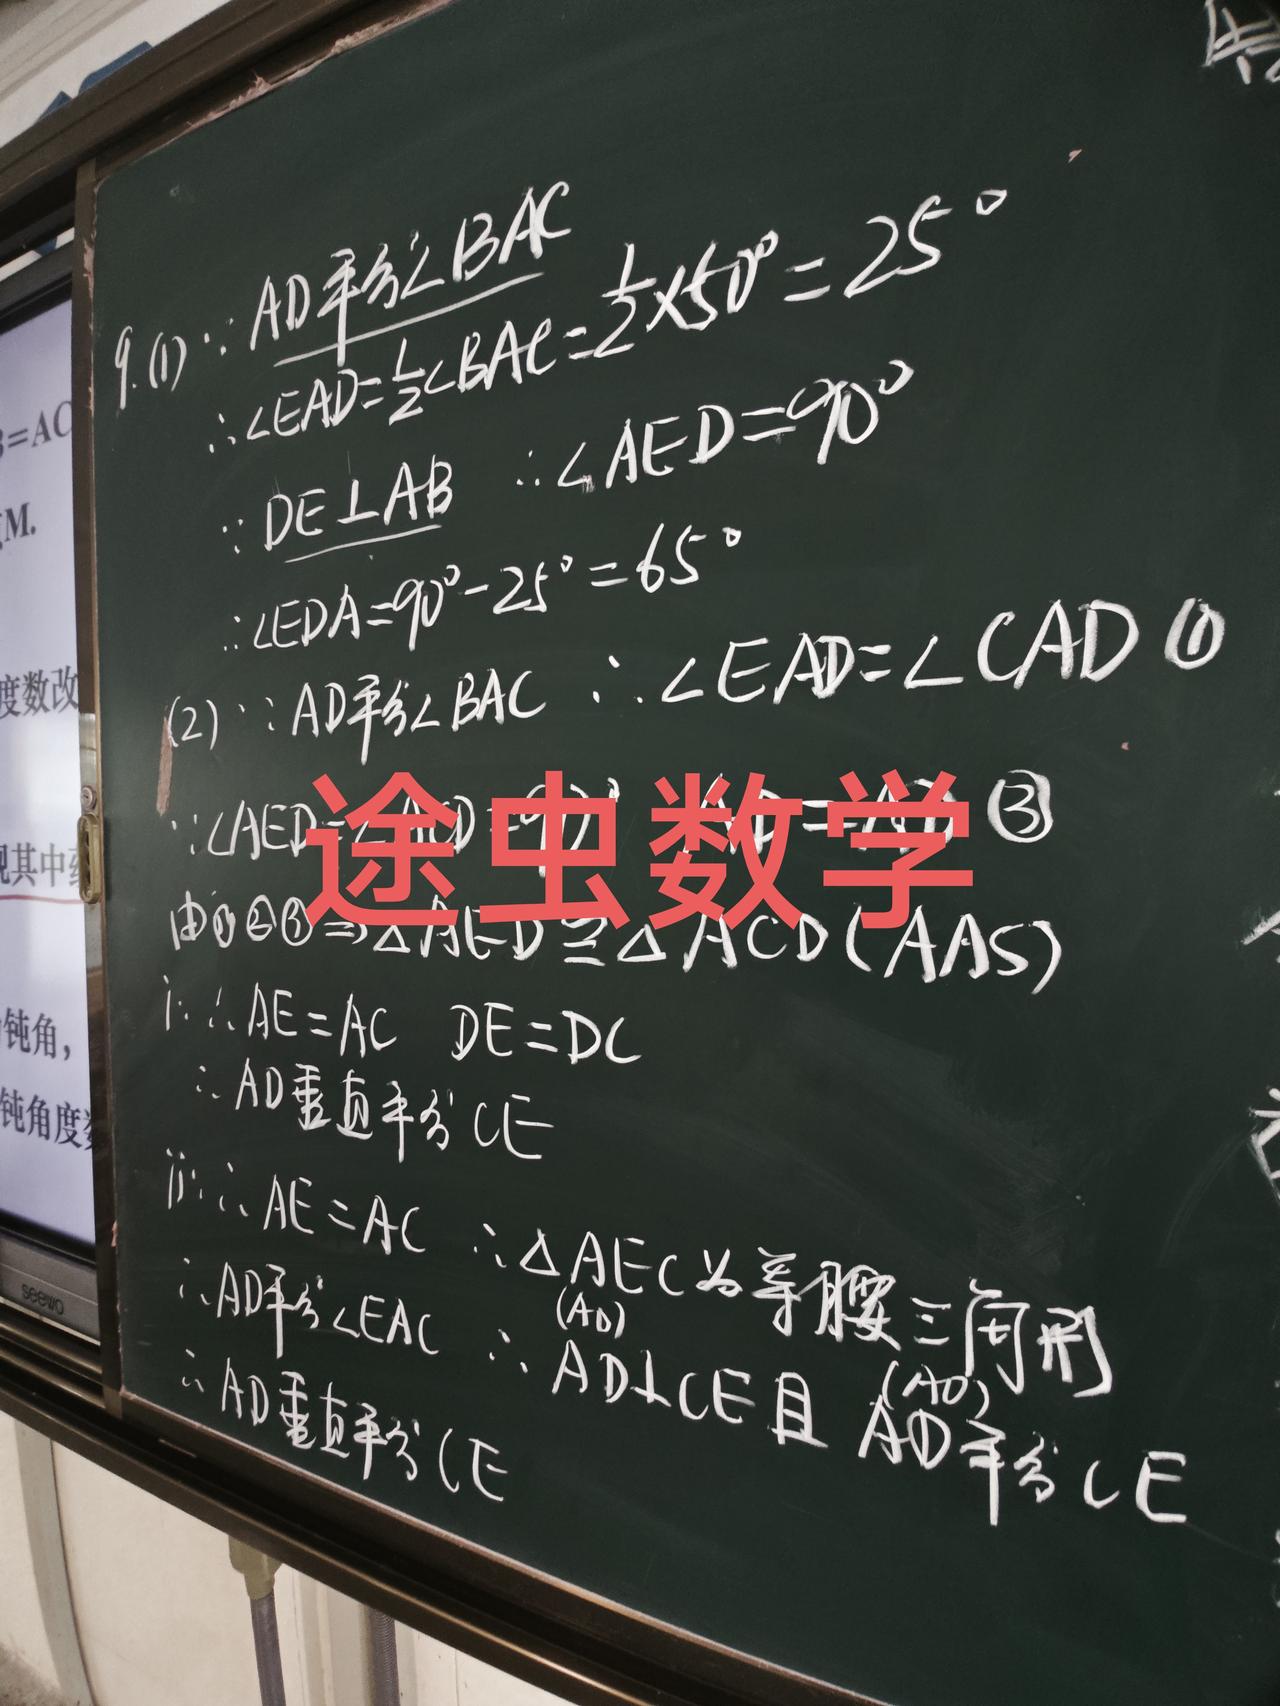 9.(1) ∵ AD平分∠BAC
∴∠EAD=1/2∠BAC=1/2×50°=25°
∵DE⊥AB ∴∠AED=90°
∴∠EDA=90°-25°=65°
(2) ∵AD平分∠BAC ∴∠EAD=∠CAD ①
∵∠AED=∠ACD=90° AD=AD ③
途虫数学
由①②③⇒△AED≌△ACD(AAS)
i. ∴AE=AC DE=DC
∴AD垂直平分CE
ii. ∴AE=AC ∴△AEC为等腰三角形
∵AD平分∠EAC ∴AD⊥CE且AD平分CE
(AD) (AD)
∴AD垂直平分CE
B=AC
M.
度数改
现其中
钝角,
钝角度数
seewo